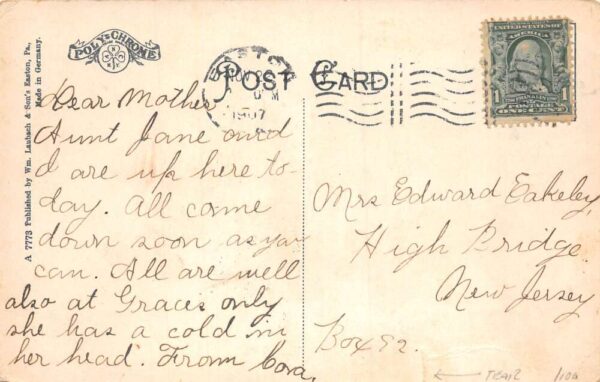 POLY-CHROME
A 7773 Published by Wm. Laubach & Son's Easton, Pa.,
Made in Germany.
POST CARD
1907
UNITED STATES OF AMERICA
1
Dear Mother
Aunt Jane and
I are up here to-
day. All come
down soon as you
can. All are well
also at Graces only
she has a cold in
her head. From Cora.
Mrs Edward Eakeley,
High Bridge.
New Jersey
Box 92.
← TEAR